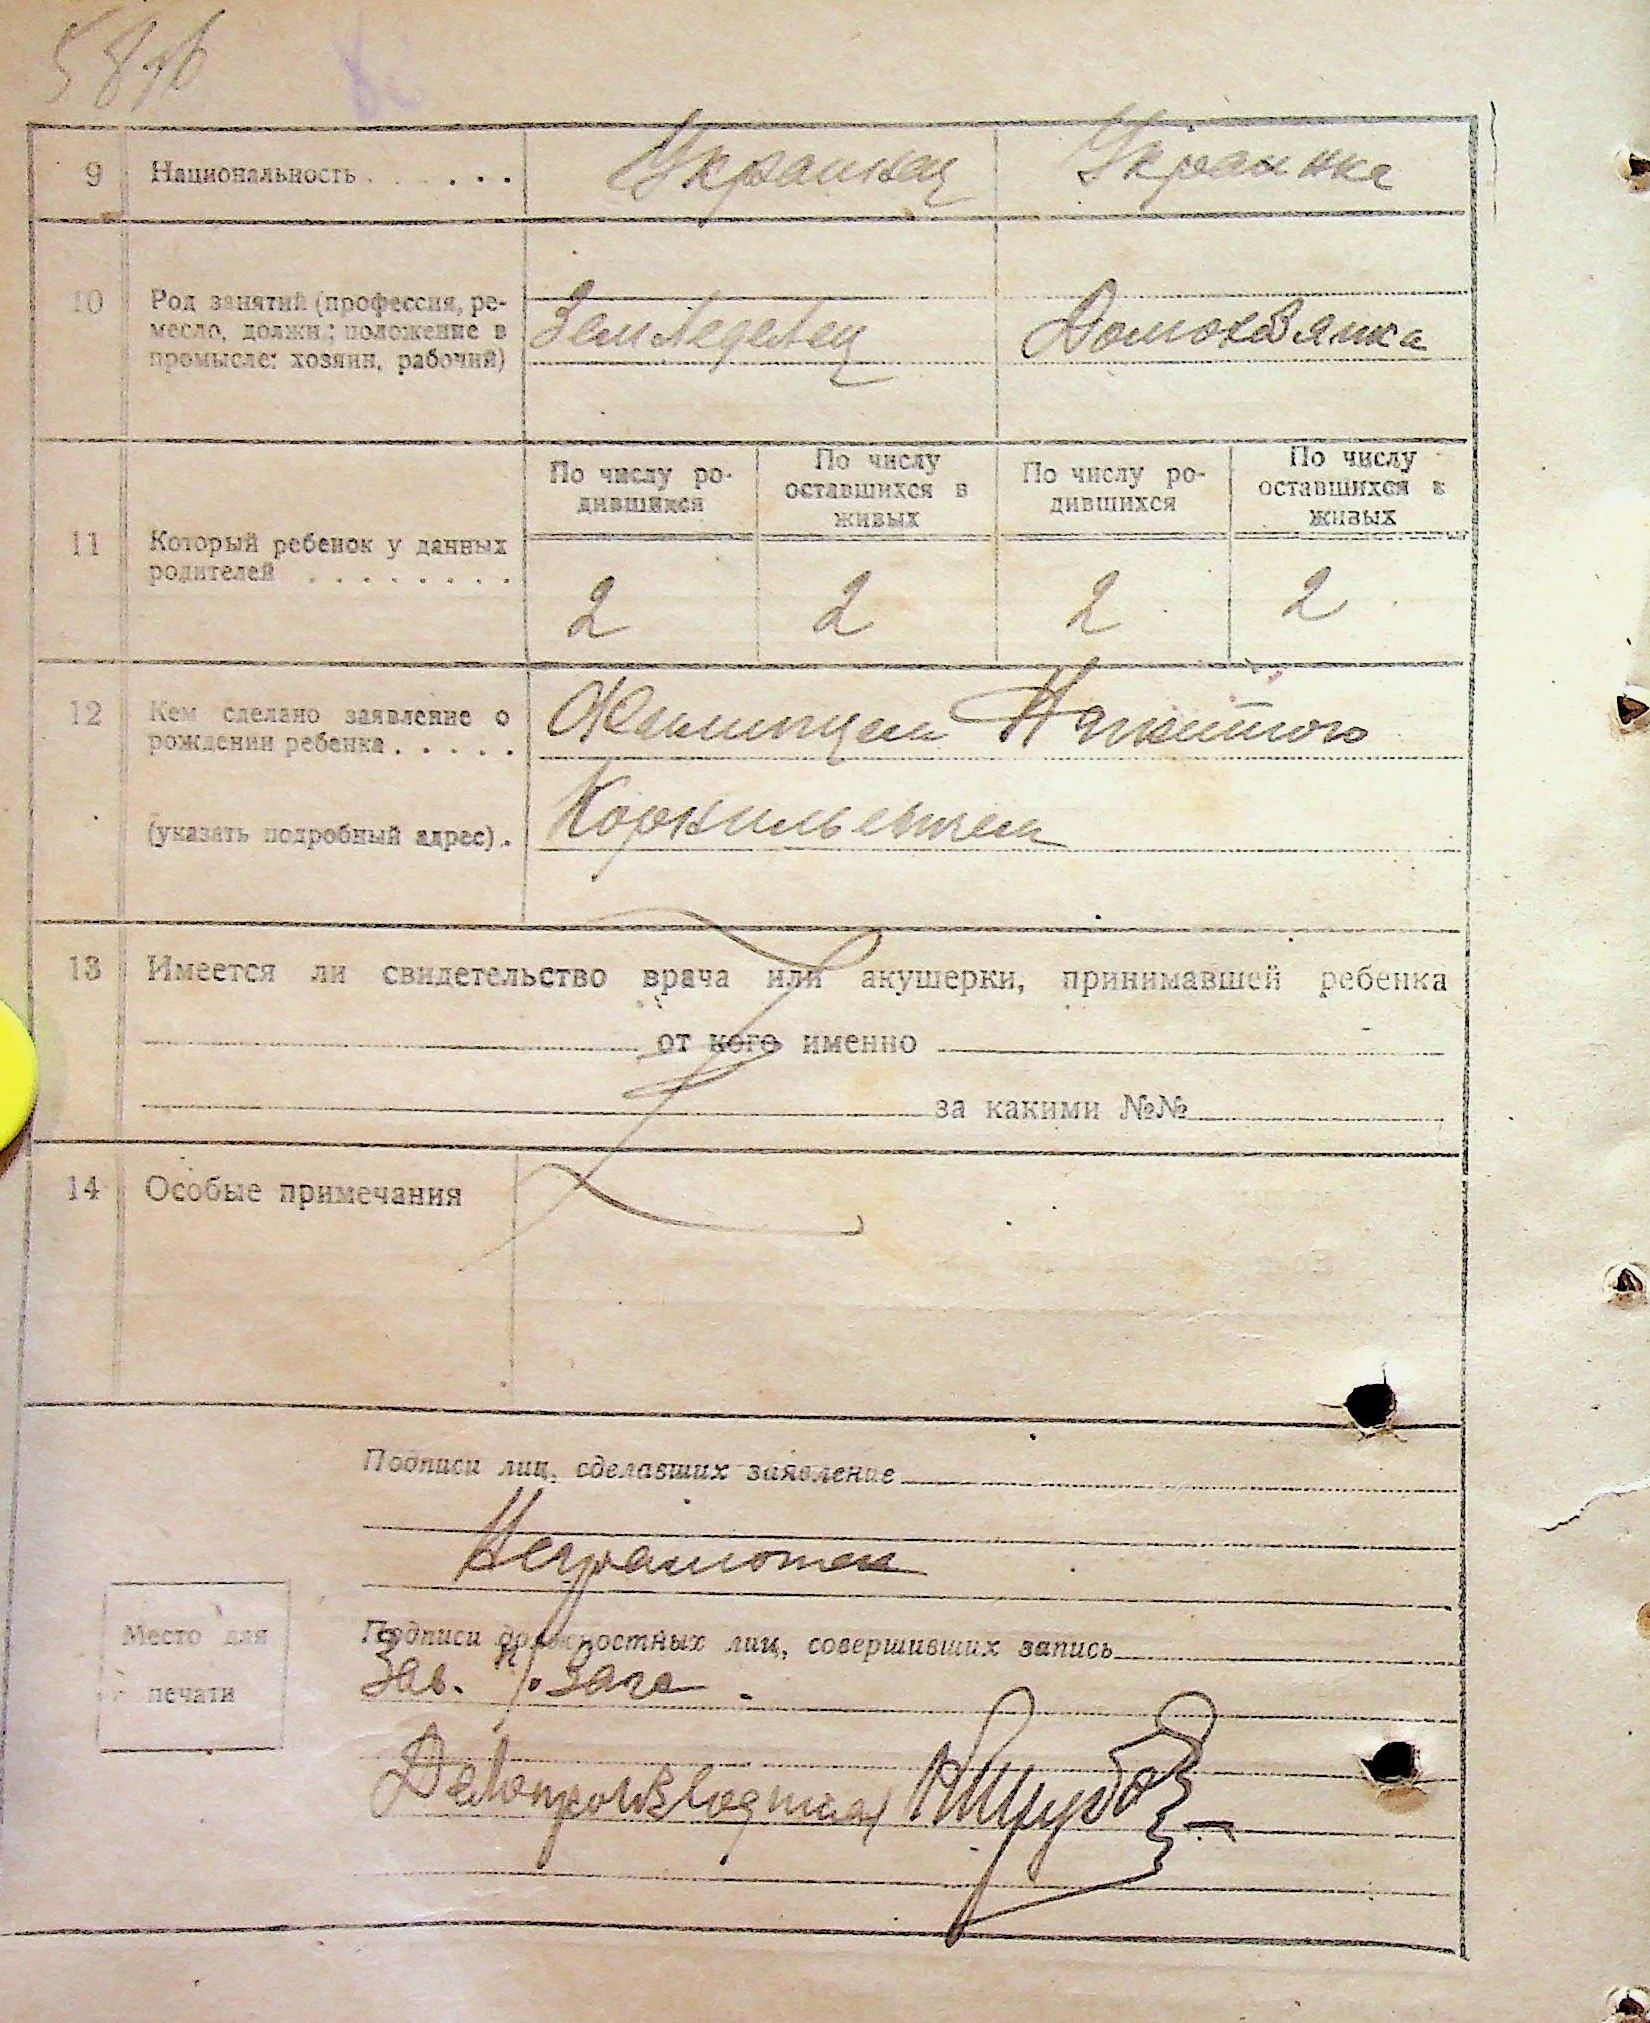 58
9 Национальность . . . . . . Украинец Украинка
10 Род занятий (профессия, ре-
месло, должн.; положение в
промысле: хозяин, рабочий)
Земледелец Домохозяйка
11 Который ребенок у данных
родителей . . . . . . . . .
По числу ро-
дившихся
По числу
оставшихся в
живых
По числу ро-
дившихся
По числу
оставшихся в
живых
2 2 2 2
12 Кем сделано заявление о
рождении ребенка . . . . .
Никитою
(указать подробный адрес) .
13 Имеется ли свидетельство врача или акушерки, принимавшей ребенка
от кого именно
за какими №№
14 Особые примечания
Подписи лиц, сделавших заявление
Неграмотен
Место для
печати
Подписи должностных лиц, совершивших запись
Зав. п/о Загс
Делопроизводитель